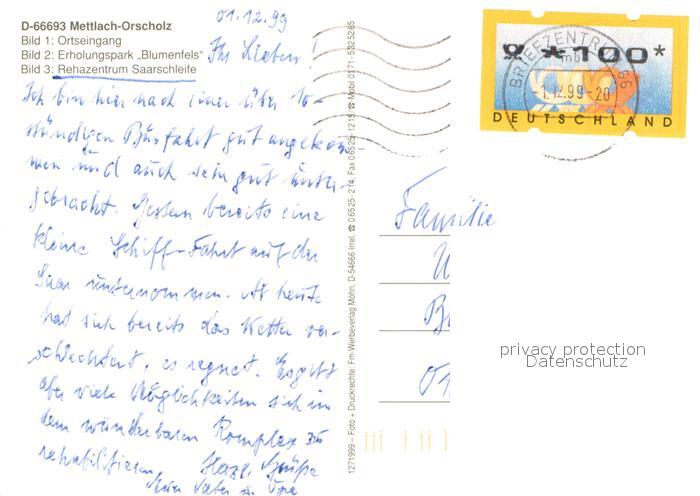 D-66693 Mettlach-Orscholz
Bild 1: Ortseingang
Bild 2: Erholungspark „Blumenfels"
Bild 3: Rehazentrum Saarschleife
01.12.99
Ihr Lieben!
Ich bin hier nach einer über 10-
stündigen Busfahrt gut angekom
men und auch sehr gut unter-
gebracht. Gestern bereits eine
kleine Schiff-Fahrt auf der
Saar unternommen. Ab heute
hat sich bereits das Wetter ver-
schlechtert, es regnet. Es gibt
aber viele Möglichkeiten sich in
dem wunderbaren Komplex zu
rehabilitieren. Herzl. Grüße
Euer Vater u.
1271999 – Foto + Druckrechte: Fm-Werbeverlag Möhn, D-54666 Irrel, ☎ 06525-214, Fax 06525-1215, ☎ Mobil 0171-5325265
BRIEFZENTRUM 66
mb
-1.12.99-20
*100*
DEUTSCHLAND
Familie
privacy protection
Datenschutz